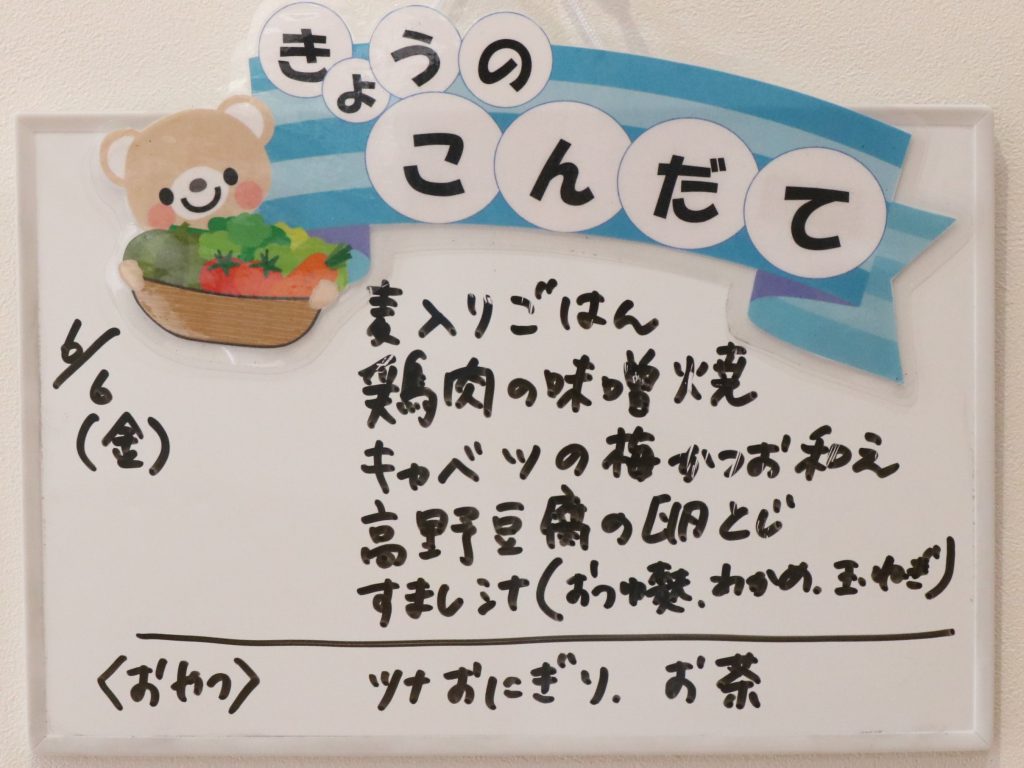 きょうの
こんだて
6/6
(金)
麦入りごはん
鶏肉の味噌焼
キャベツの梅かつお和え
高野豆腐の卵とじ
すまし汁(おつゆ麩、わかめ、玉ねぎ)
〈おやつ〉 ツナおにぎり、お茶